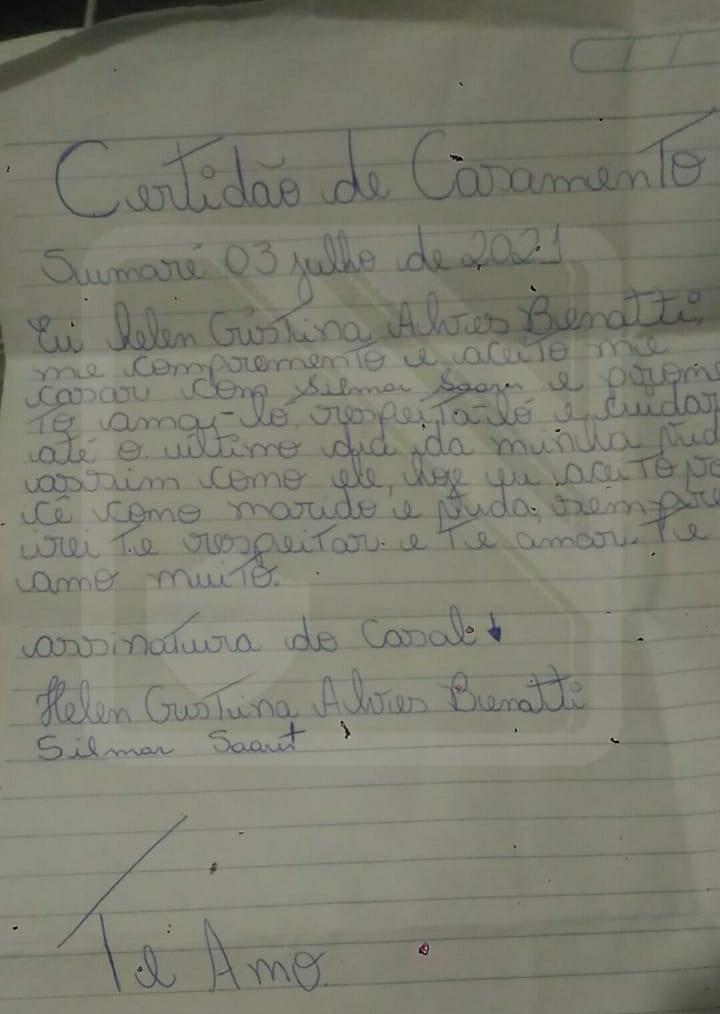 Certidão de Casamento
Sumaré 03 julho de 2021
Eu Helen Cristina Alves Benatti,
me comprometo e aceito me
casar com Silmar e prome
to ama-lo, respeita-ló e cuidar
até o ultimo dia da minha vid
assim como ele, hoje eu aceito vo
cê como marido e vida, sempre
irei te respeitar e te amar. Te
amo muito.
assinatura do Casal
Helen Cristina Alves Benatti
Silmar
Te Amo